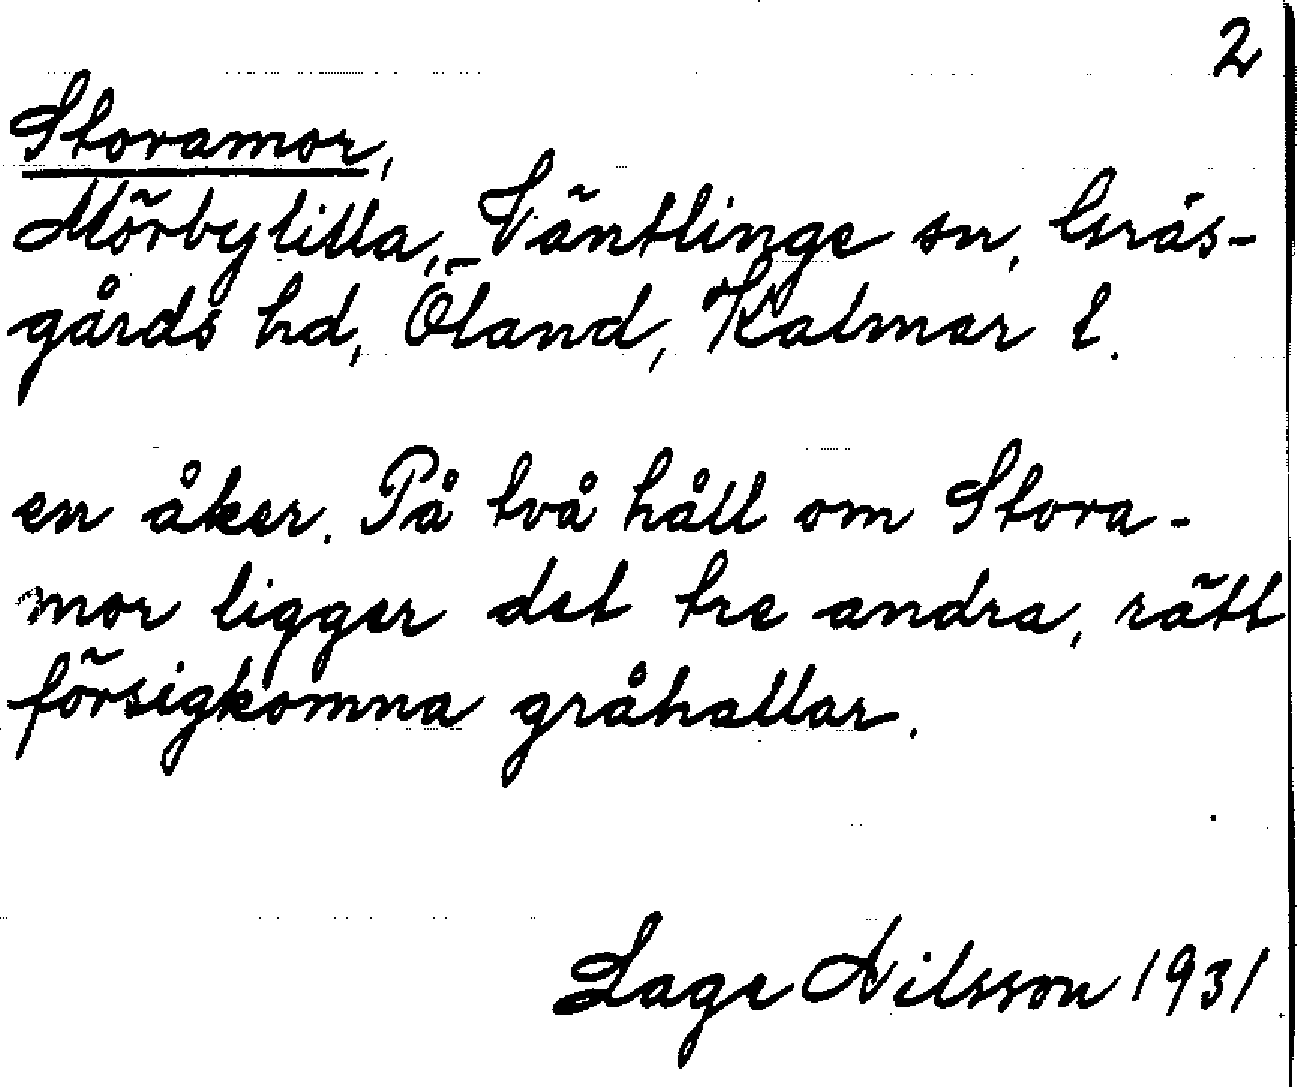 2
Storamor,
Mörbylilla, Väntlinge sn, Gräs-
gårds hd, Öland, Kalmar l.
en åker. På två håll om Stora-
mor ligger det tre andra, rätt
försigkomna gråhallar.
Lage Nilsson 1931